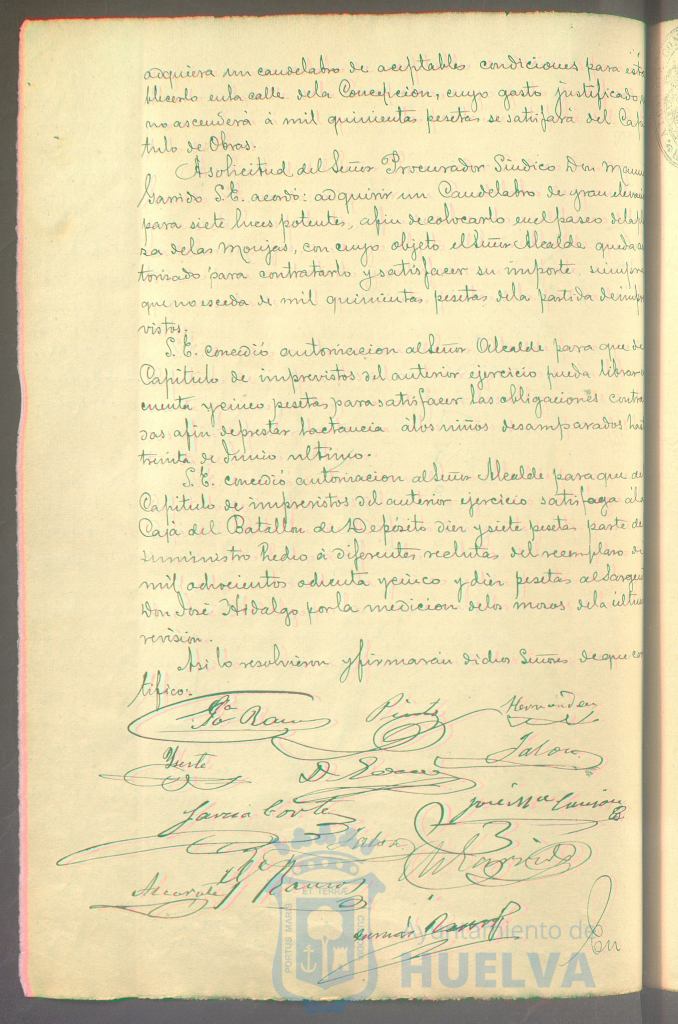 adquiera un candelabro de aceptables condiciones para esta
blecerlo en la calle de la Concepcion, cuyo gasto justificado,
no ascenderá á mil quinientas pesetas se satisfará del Capi
tulo de Obras.
A solicitud del Señor Procurador Síndico Don Manu
Garrido S.E. acordó: adquirir un Candelabro de gran elevaci
para siete luces potentes, afin de colocarlo en el paseo de la pla
za de las Monjas, con cuyo objeto el Señor Alcalde queda au
torizado para contratarlo y satisfacer su importe, siempre
que no esceda de mil quinientas pesetas de la partida de impre
vistos.
S. E. concedió autorizacion al Señor Alcalde para que de
Capitulo de imprevistos del anterior ejercicio pueda librar
cuenta y cinco pesetas para satisfacer las obligaciones contra
das afin de prestar lactancia á los niños desamparados has
treinta de Junio ultimo.
S. E. concedió autorizacion al Señor Alcalde para que de
Capitulo de imprevistos del anterior ejercicio satisfaga á la
Caja del Batallon de Depósito diez y siete pesetas parte de
suministro hecho á diferentes reclutas del reemplazo de
mil ochocientos ochenta y cinco y diez pesetas al Sargen
Don José Hidalgo por la medicion de los mozos de la ultim
revisión.
Asi lo resolvieron y firmarán dichos Señores de que cer
tifico.
Ramos Pinto Hernandez
Yserte Jalon
Garcia Cortes José Mª
Jalon M Garrido
Ramos
En
PORTUS MARIS ET TERRAE CUSTODIA
Ayuntamiento de
HUELVA